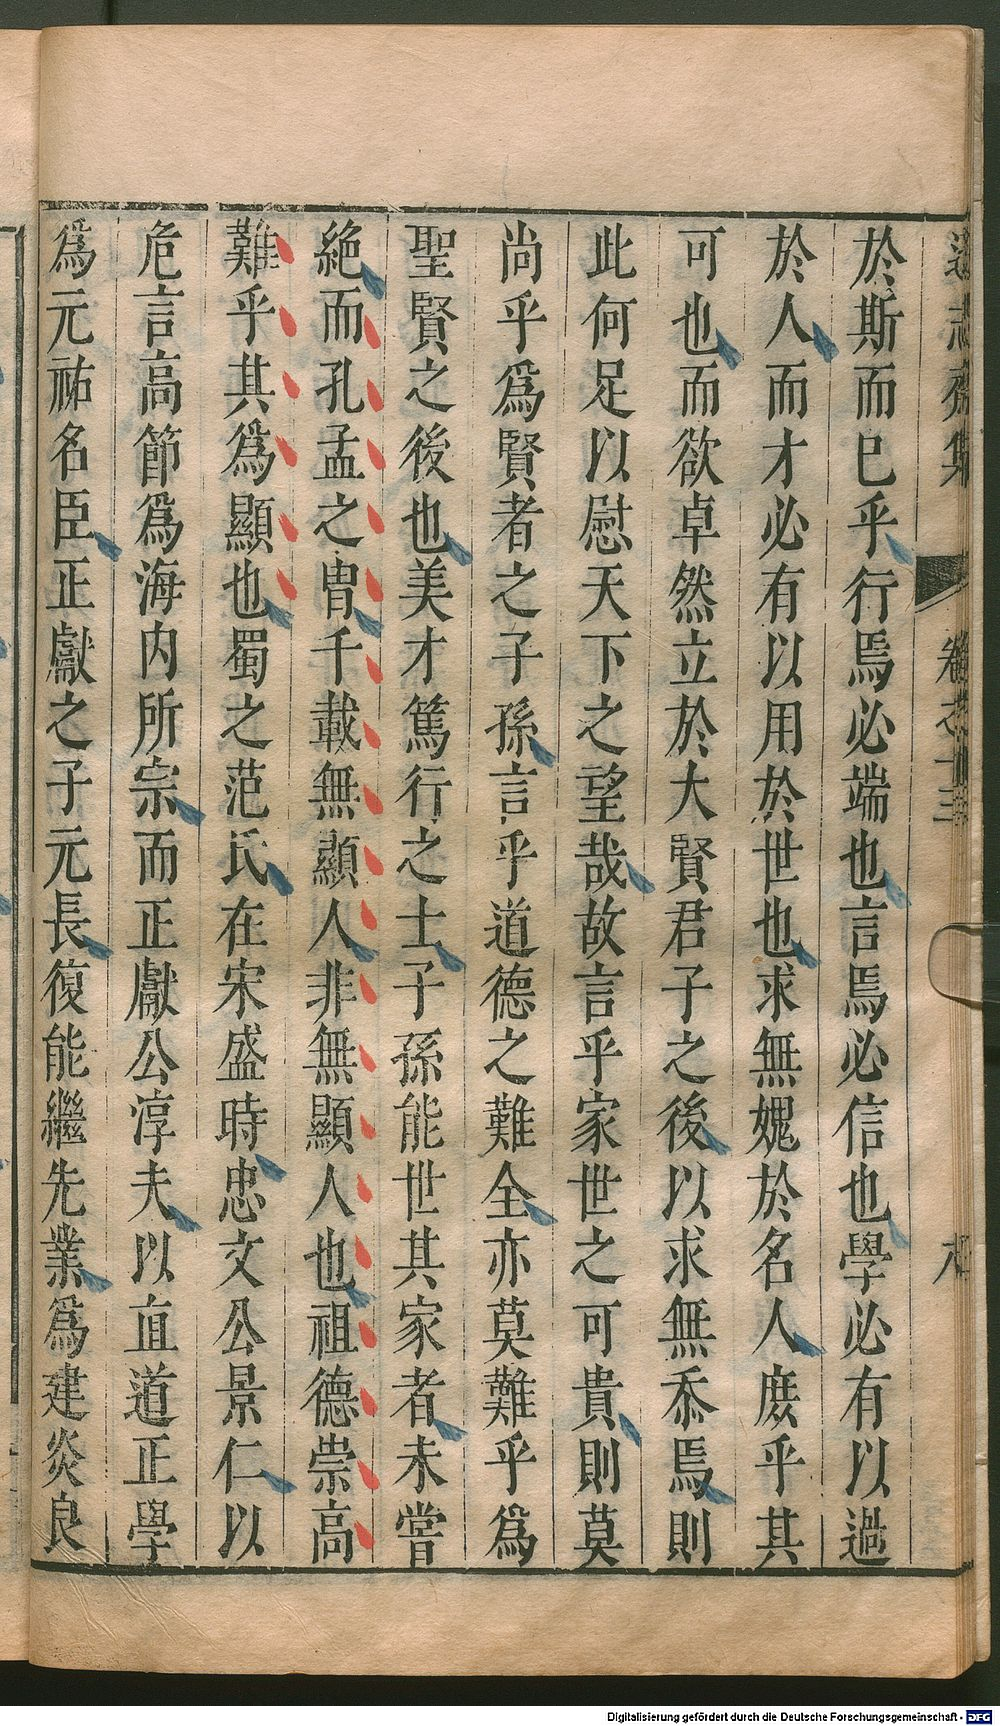 遜志齋集 卷之十三 九
於斯而已乎行焉必端也言焉必信也學必有以過
於人而才必有以用於世也求無媿於名人庶乎其
可也而欲卓然立於大賢君子之後以求無忝焉則
此何足以慰天下之望哉故言乎家世之可貴則莫
尚乎爲賢者之子孫言乎道德之難全亦莫難乎爲
聖賢之後也美才篤行之士子孫能世其家者未嘗
絶而孔孟之冑千載無顯人非無顯人也祖德崇高
難乎其爲顯也蜀之范氏在宋盛時忠文公景仁以
危言高節爲海内所宗而正獻公淳夫以直道正學
爲元祐名臣正獻之子元長復能繼先業爲建炎良
Digitalisierung gefördert durch die Deutsche Forschungsgemeinschaft - DFG